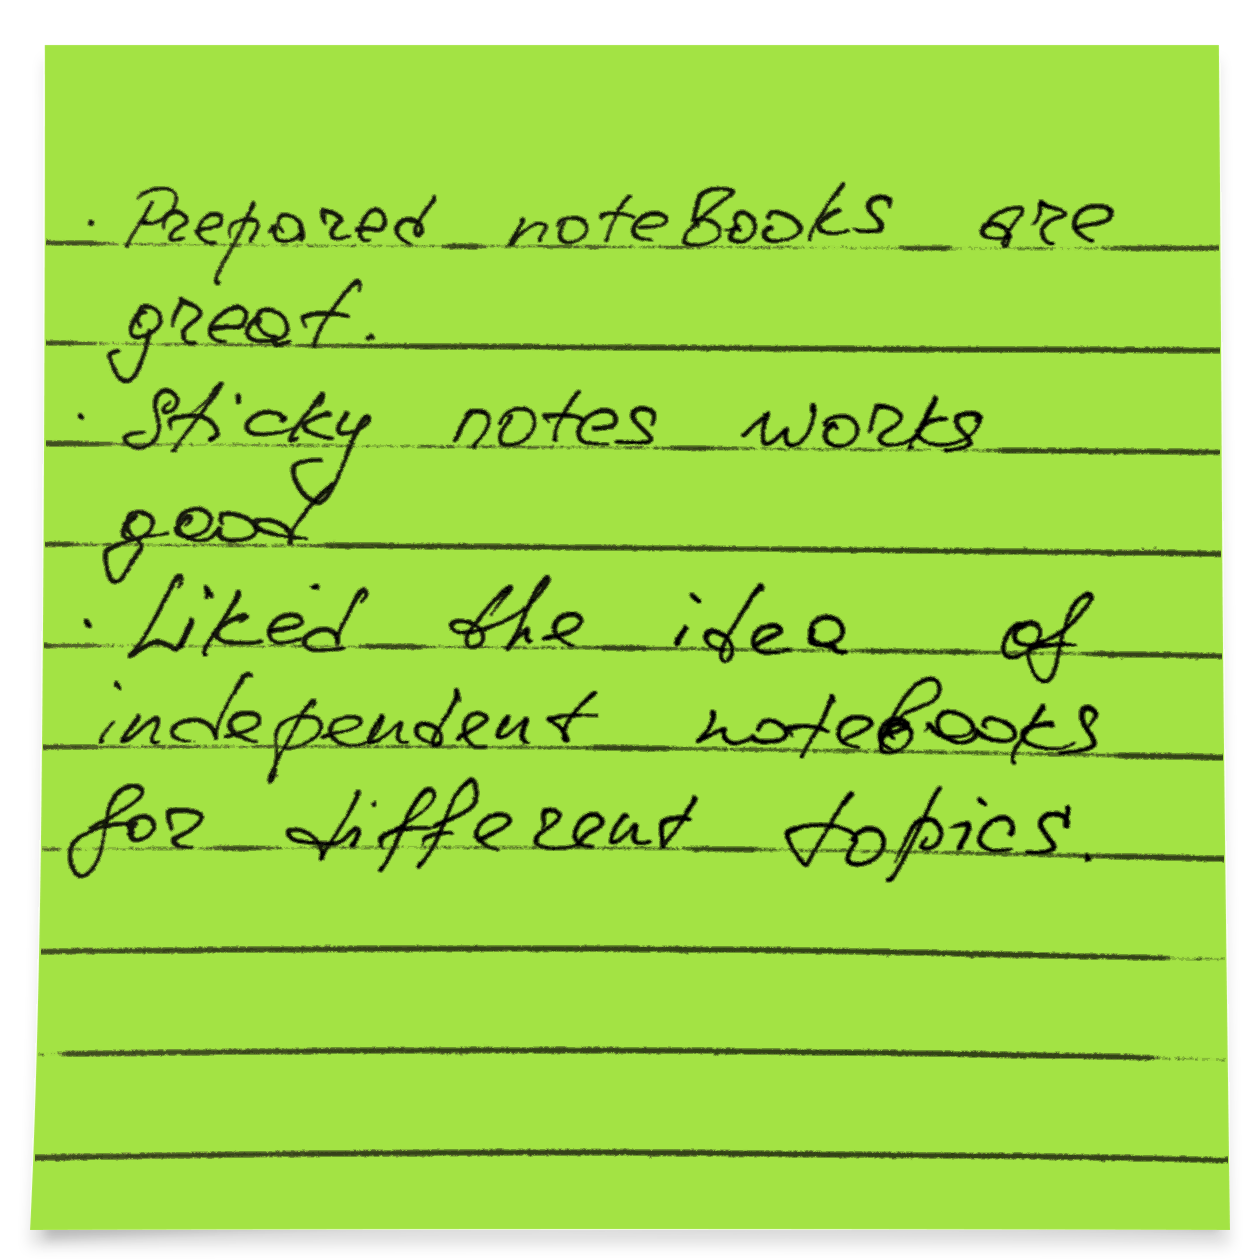 · Prepared noteBooks are
great.
· Sticky notes works
good
· Liked the idea of
independent notebooks
for different topics.